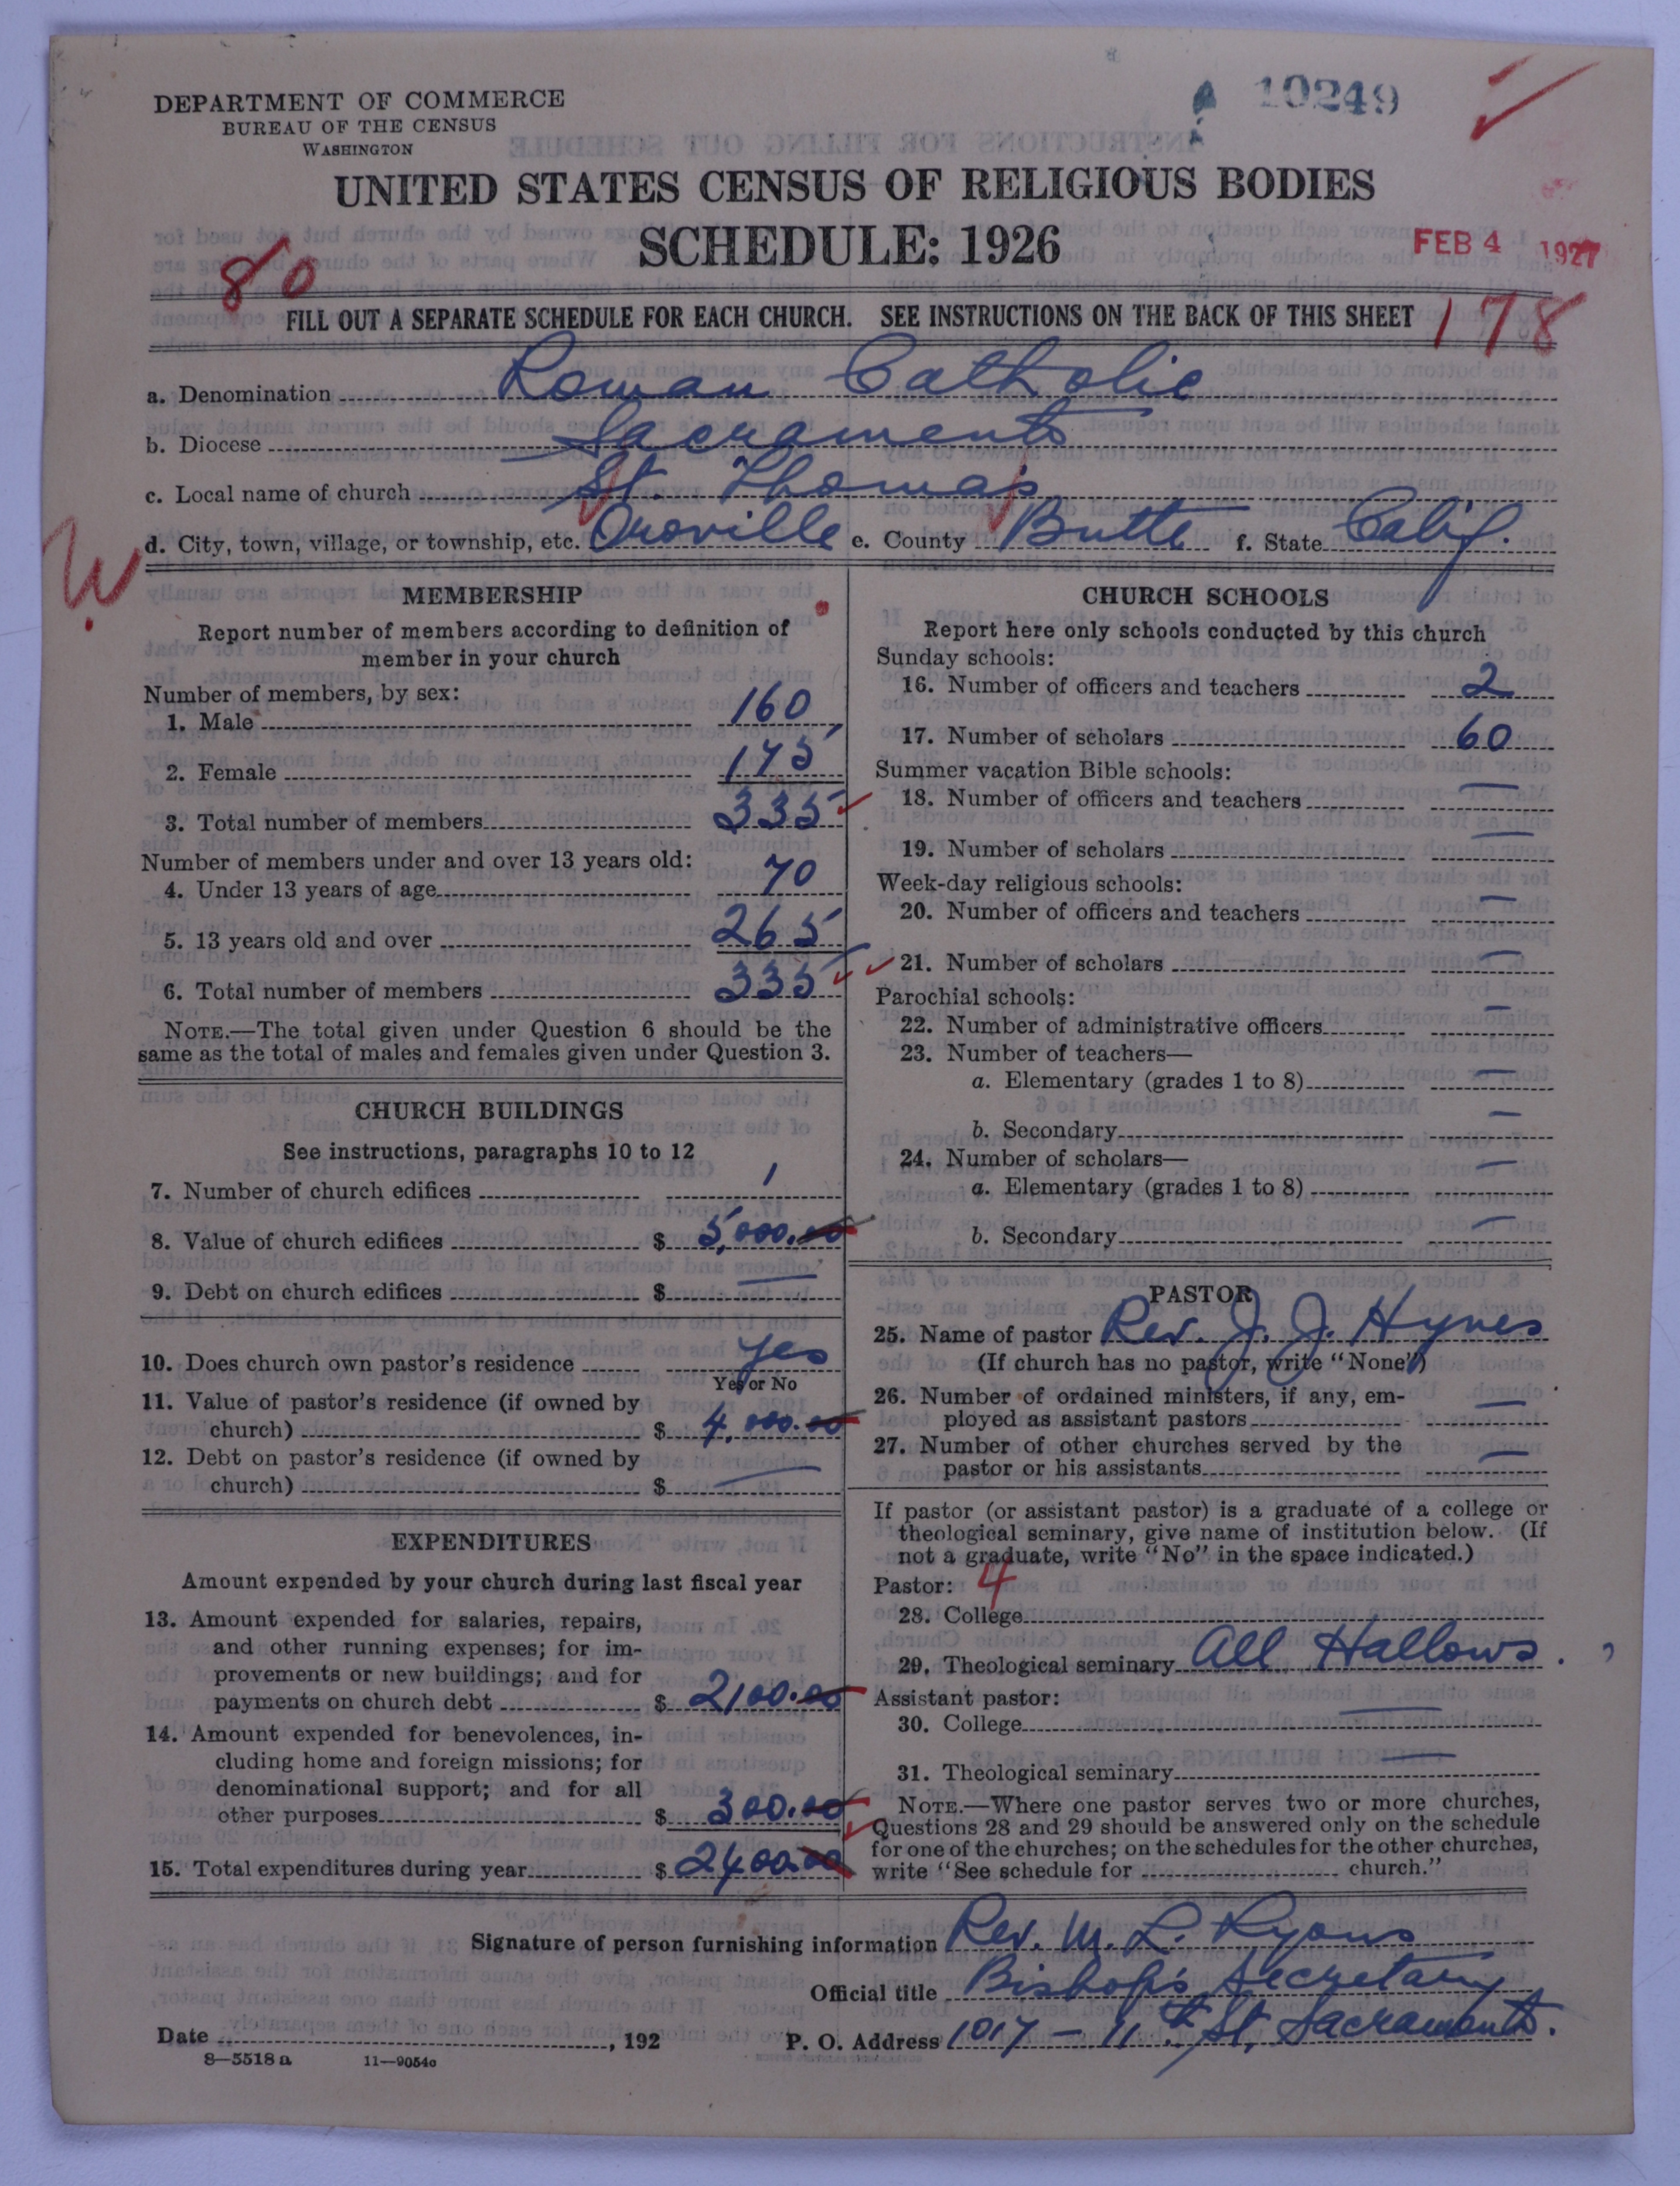 DEPARTMENT OF COMMERCE
BUREAU OF THE CENSUS
WASHINGTON
10249
UNITED STATES CENSUS OF RELIGIOUS BODIES
SCHEDULE: 1926
FEB 4 1927
80
FILL OUT A SEPARATE SCHEDULE FOR EACH CHURCH. SEE INSTRUCTIONS ON THE BACK OF THIS SHEET
178
a. Denomination Roman Catholic
b. Diocese Sacramento
c. Local name of church St. Thomas
d. City, town, village, or township, etc. Oroville e. County Butte f. State Calif.
W
MEMBERSHIP
Report number of members according to definition of
member in your church
Number of members, by sex:
1. Male 160
2. Female 175
3. Total number of members 335
Number of members under and over 13 years old:
4. Under 13 years of age 70
5. 13 years old and over 265
6. Total number of members 335
NOTE.—The total given under Question 6 should be the
same as the total of males and females given under Question 3.
CHURCH BUILDINGS
See instructions, paragraphs 10 to 12
7. Number of church edifices 1
8. Value of church edifices $ 5,000.00
9. Debt on church edifices $ —
10. Does church own pastor's residence yes
Yes or No
11. Value of pastor's residence (if owned by
church) $ 4,000.00
12. Debt on pastor's residence (if owned by
church) $ —
EXPENDITURES
Amount expended by your church during last fiscal year
13. Amount expended for salaries, repairs,
and other running expenses; for im-
provements or new buildings; and for
payments on church debt $ 2100.00
14. Amount expended for benevolences, in-
cluding home and foreign missions; for
denominational support; and for all
other purposes $ 300.00
15. Total expenditures during year $ 2400.00
CHURCH SCHOOLS
Report here only schools conducted by this church
Sunday schools:
16. Number of officers and teachers 2
17. Number of scholars 60
Summer vacation Bible schools:
18. Number of officers and teachers —
19. Number of scholars —
Week-day religious schools:
20. Number of officers and teachers —
21. Number of scholars —
Parochial schools:
22. Number of administrative officers —
23. Number of teachers—
a. Elementary (grades 1 to 8) —
b. Secondary —
24. Number of scholars— —
a. Elementary (grades 1 to 8)
b. Secondary —
PASTOR
25. Name of pastor Rev. J. J. Hynes
(If church has no pastor, write "None")
26. Number of ordained ministers, if any, em-
ployed as assistant pastors —
27. Number of other churches served by the
pastor or his assistants —
If pastor (or assistant pastor) is a graduate of a college or
theological seminary, give name of institution below. (If
not a graduate, write "No" in the space indicated.)
Pastor: 4
28. College
29. Theological seminary All Hallows.
Assistant pastor:
30. College —
31. Theological seminary —
NOTE.—Where one pastor serves two or more churches,
Questions 28 and 29 should be answered only on the schedule
for one of the churches; on the schedules for the other churches,
write "See schedule for church."
Signature of person furnishing information Rev. M. L. Lyons
Official title Bishop's Secretary
Date , 192 P. O. Address 1017 - 11th St, Sacramento.
8—5518 a 11—9054c